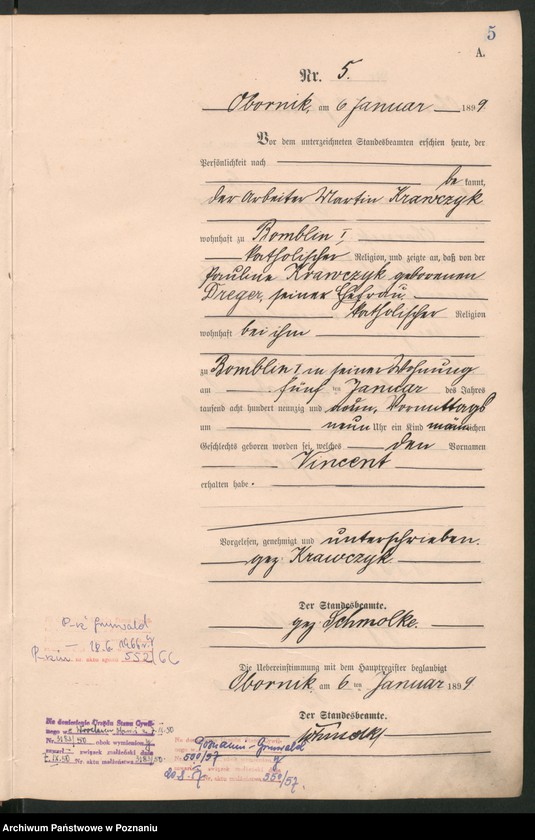 5
A.
Nr. 5.
Obornik, am 6 Januar 1899
Vor dem unterzeichneten Standesbeamten erschien heute, der
Persönlichkeit nach
be kannt,
der Arbeiter Martin Krawczyk
wohnhaft zu Bomblin I,
katholischer Religion, und zeigte an, daß von der
Pauline Krawczyk geborenen
Dreger, seiner Ehefrau
katholischer Religion
wohnhaft bei ihm
zu Bomblin I in seiner Wohnung
am fünf ten Januar des Jahres
tausend acht hundert neunzig und neun, Vormittags
um neun Uhr ein Kind männlichen
Geschlechts geboren worden sei, welches den Vornamen
Vincent
erhalten habe.
Vorgelesen, genehmigt und unterschrieben.
gez. Krawczyk
Der Standesbeamte.
gez Schmolke.
Die Uebereinstimmung mit dem Hauptregister beglaubigt
Obornik, am 6 ten Januar 1899
Der Standesbeamte.
552/66
Na doniesienie Urzędu Stanu Cywil-
nego w
Nr. 3183/50 obok wymieniony
zawarł związek małżeński dnia
Nr. aktu małżeństwa 3183/50
Poznań-Grunwald
Nr. 550/57
związek małżeński
550/57.
Archiwum Państwowe w Poznaniu